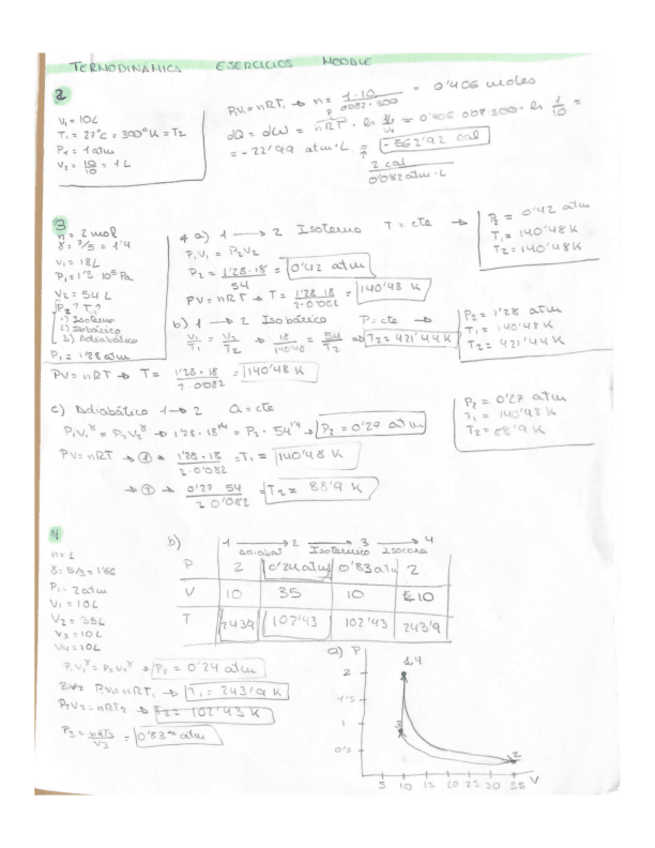 TERMODINÁMICA EJERCICIOS MOODLE
2
V₁ = 10L
T₁ = 27°C = 300°K = T₂
P₁ = 1 atm
V₂ = 10/10 = 1 L
P₁V₁ = nRT₁ → n = 1·10 / 0'082·300 = 0'406 moles
dQ = dW = nRT · ln V₂/V₁ = 0'406·0'082·300·ln 1/10 =
= -22'99 atm·L = -562'92 cal
2 cal
0'082 atm·L
3
n = 2 mol
γ = 7/5 = 1'4
V₁ = 18L
P₁ = 1'3 10⁵ Pa
V₂ = 54 L
P₂? T₂?
1) Isotermo
2) Isobárico
3) Adiabático
P₁ = 1'28 atm
a) 1 → 2 Isotermo T = cte →
P₁V₁ = P₂V₂
P₂ = 1'28·18 / 54 = 0'42 atm
PV = nRT → T = 1'28·18 / 2·0'082 = 140'48 K
P₂ = 0'42 atm
T₁ = 140'48 K
T₂ = 140'48 K
b) 1 → 2 Isobárico P = cte →
V₁/T₁ = V₂/T₂ → 18/140'48 = 54/T₂ → T₂ = 421'44 K
P₂ = 1'28 atm
T₁ = 140'48 K
T₂ = 421'44 K
PV = nRT → T = 1'28·18 / 2·0'082 = 140'48 K
c) Adiabático 1 → 2 Q = cte
P₁V₁^γ = P₂V₂^γ → 1'28·18^1'4 = P₂·54^1'4 → P₂ = 0'27 atm
PV = nRT → ① → 1'28·18 / 2·0'082 = T₁ = 140'48 K
→ ② → 0'27 54 / 2 0'082 = T₂ = 88'9 K
P₂ = 0'27 atm
T₁ = 140'48 K
T₂ = 88'9 K
4
n = 1
γ = 5/3 = 1'66
P₁ = 2 atm
V₁ = 10L
V₂ = 35L
V₃ = 10L
V₄ = 10L
b) 1 → 2 → 3 → 4
adiabat Isotermico Isocora
P 2 0'24 atm 0'83 atm 2
V 10 35 10 10
T 243'9 102'43 102'43 243'9
P₁V₁^γ = P₂V₂^γ → P₂ = 0'24 atm
P₁V₁ = nRT₁ → T₁ = 243'9 K
P₂V₂ = nRT₂ → T₂ = 102'43 K
P₃ = nRT₃/V₃ = 0'83 atm
a) P
2
1'5
1
0'5
1,4
3
2
5 10 15 20 25 30 35 V